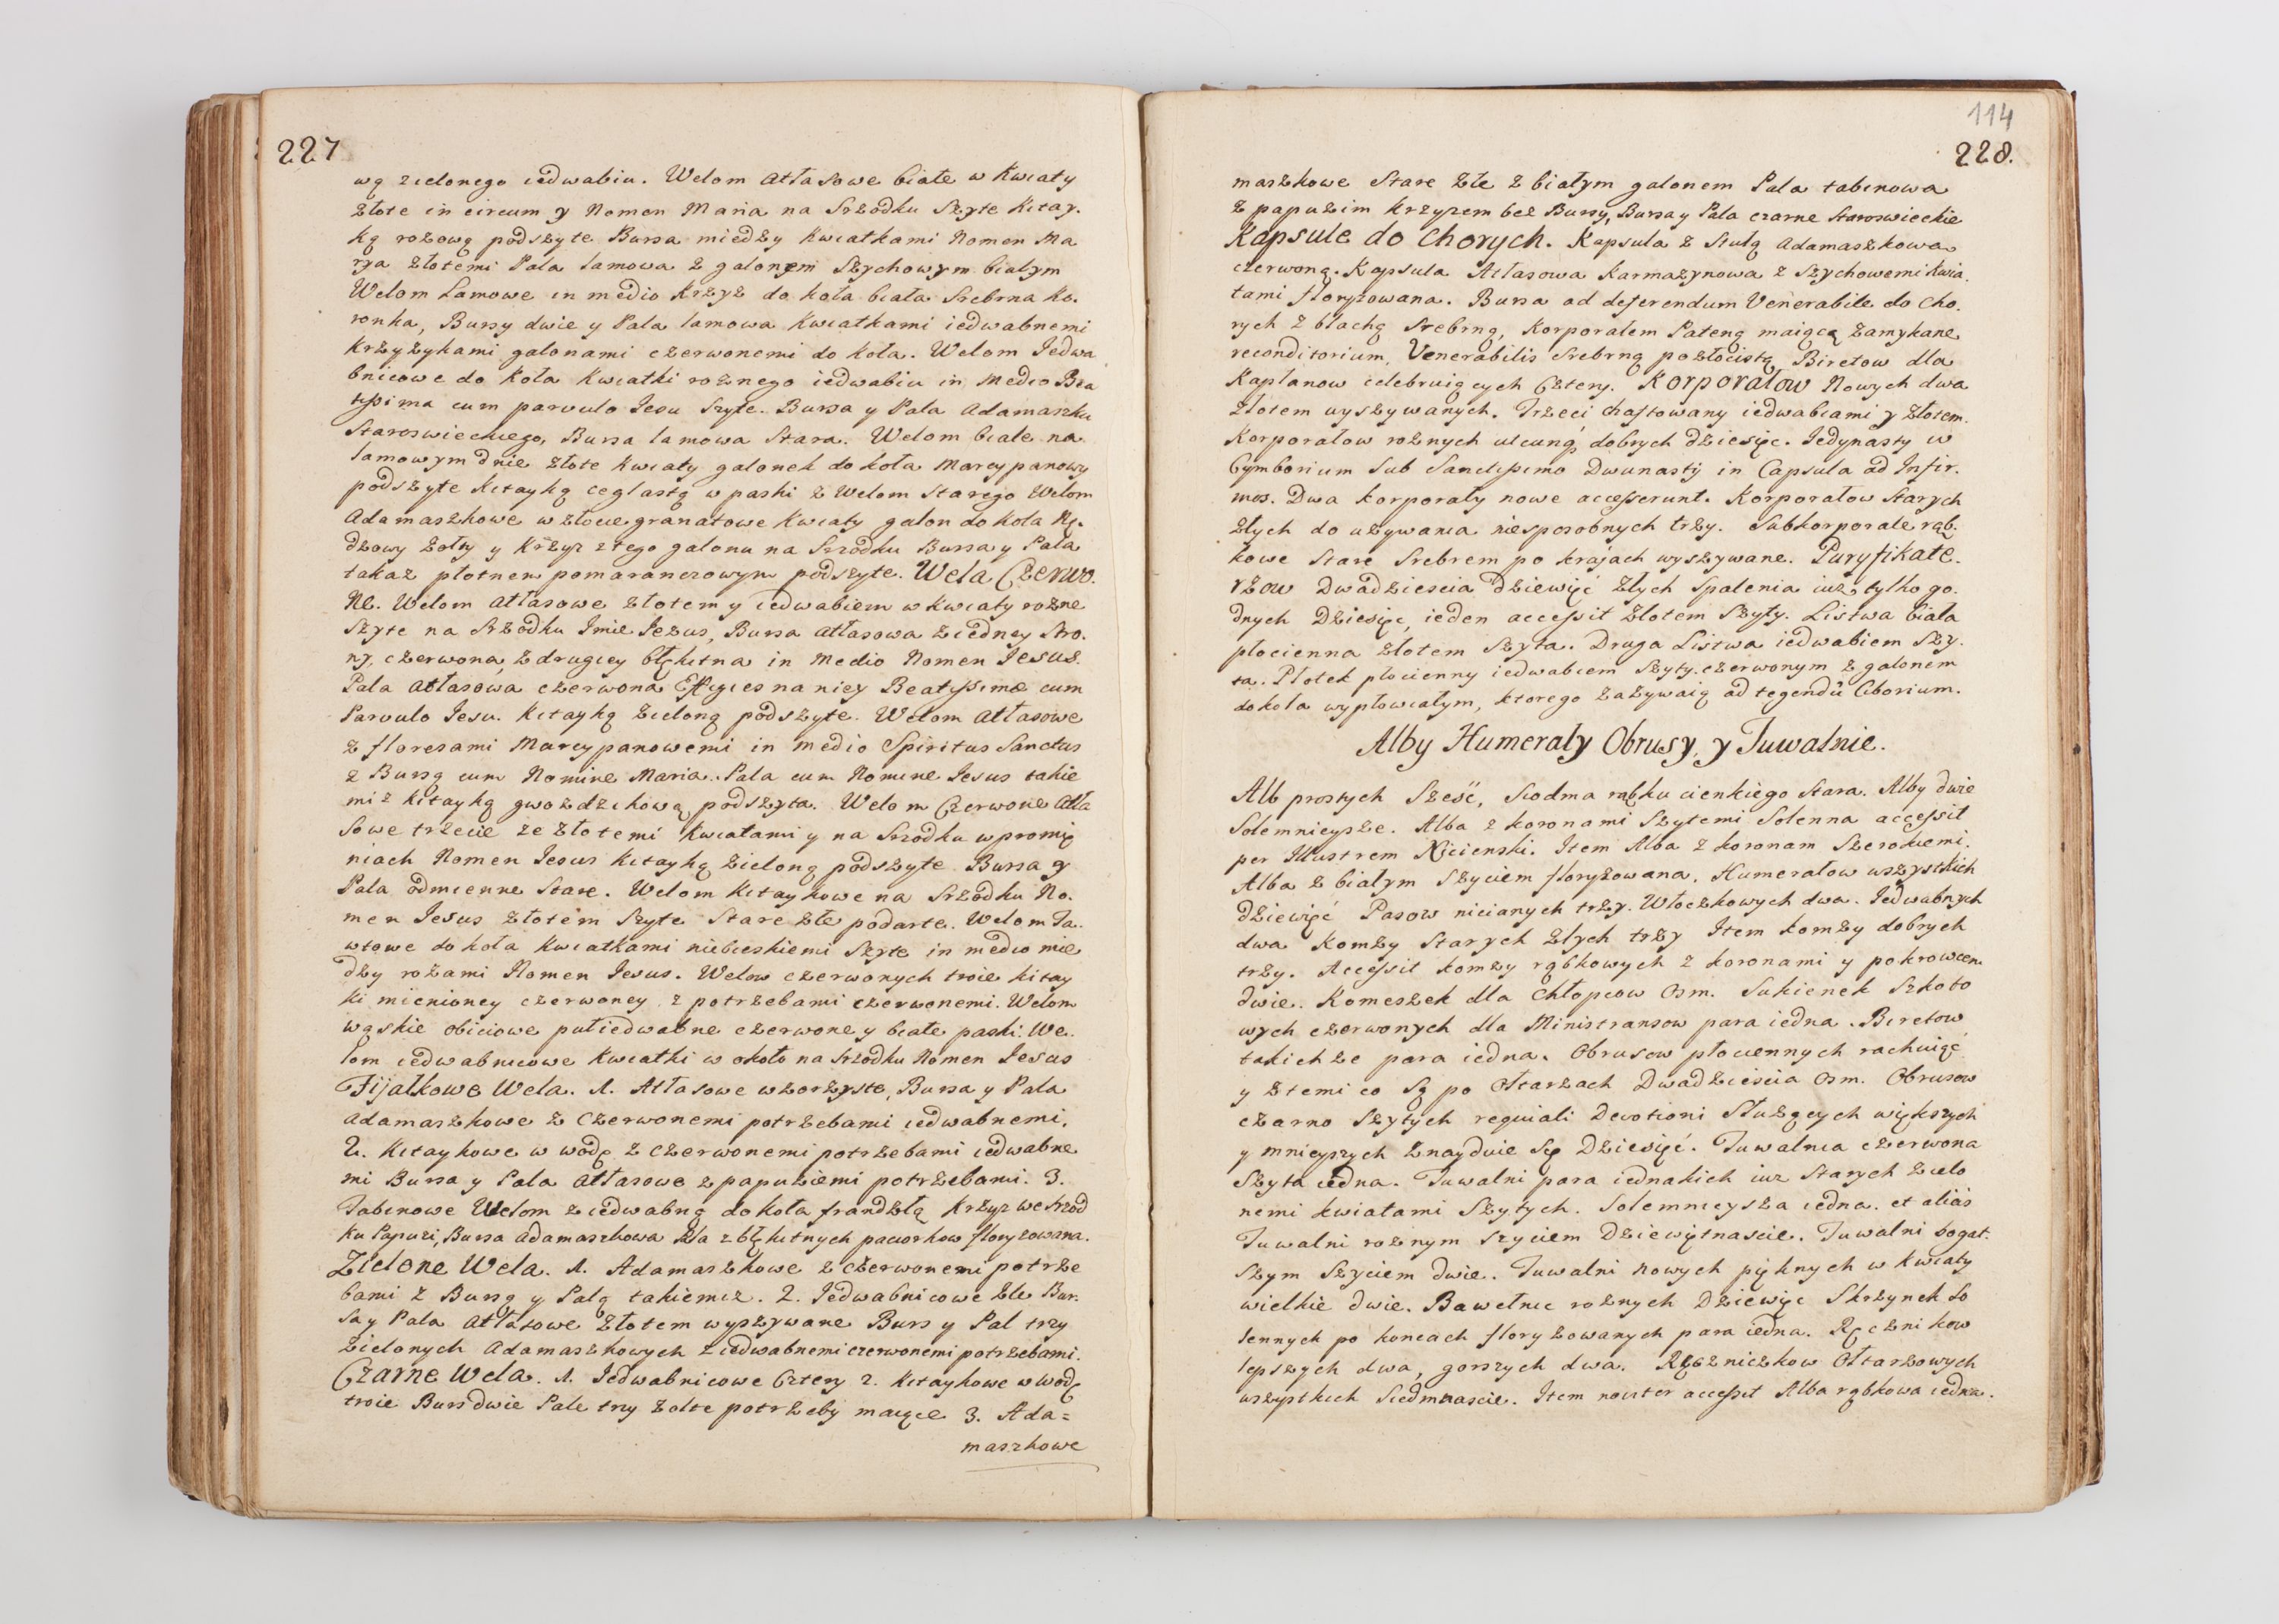 227
wą zielonego iedwabiu. Welom Atłasowe białe w Kwiaty
złote in circum y Nomen Maria na Srzodku Szyte Kitay.
ką rozową podszyte Bursa miedzy Kwiatkami Nomen Ma
rya złotemi Pala lamowa z galonem Szychowym białym
Welom Lamowe in medio Krzyż do koła biała Srebrna Ko.
ronka, Bursy dwie y Pala lamowa Kwiatkami iedwabnemi
Krzyżykami galonami czerwonemi do koła. Welom Jedwa
bnicowe do Koła Kwiatki roznego iedwabiu in Medio Bea
tissima cum parvulo Jesu Szyte. Bursa y Pala Adamaszku
Staroswieckiego, Bursa lamowa Stara. Welom białe na
lamowym dnie złote Kwiaty galonek do koła Marcypanowy
podszyte Kitayką ceglastą w paski z Welom Starego Welom
Adamaszkowe w złocie granatowe Kwiaty galon do koła Rę.
dzowy żołty y Krzyz z tego galonu na Srzodku Bursa y Pala
takaz płotnem pomaranczowym podszyte. Wela Czerwo.
ne. Welom Atłasowe złotem y iedwabiem w Kwiaty rozne
Szyte na Srzodku Imie Jezus, Bursa Atłasowa z iedney Stro.
ny, czerwona, z drugiey błękitna in Medio Nomen Jesus.
Pala Atłasowa czerwona Effigies na niey Beatissimæ cum
Parvulo Jesu. Kitayką zieloną podszyte. Welom Atłasowe
z floresami Marcypanowemi in medio Spiritus Sanctus
z Bursą cum Nomine Maria. Pala cum Nomine Jesus takie
miz Kitayką gwozdzikową podszyta. Welom Czerwone Atła
sowe trzecie ze złotemi Kwiatami y na Srzodku w promię
niach Nomen Jesus Kitayką zieloną podszyte Bursa y
Pala odmienne Stare. Welom Kitaykowe na Srzodku No.
men Jesus złotem Szyte Stare złe podarte. Welom Ta.
wtowe do koła Kwiatkami niebieskiemi Szyte in medio mie
dzy rozami Nomen Jesus. Welow czerwonych troie Kitay
ki mienioney czerwoney z potrzebami czerwonemi. Welom
wąskie obiciowe pułiedwabne czerwone y białe paski. We.
lom iedwabnicowe Kwiatki w około na Srzodku Nomen Jesus
Fijałkowe Wela. 1. Atłasowe wzorzyste, Bursa y Pala
adamaszkowe z Czerwonemi potrzebami iedwabnemi.
2. Kitaykowe w wodę z czerwonemi potrzebami iedwabne
mi Bursa y Pala Atłasowe z papuziemi potrzebami. 3.
Tabinowe Welom z iedwabną do koła frandzlą Krzyz we Srzod
ku Papuzi, Bursa Adamaszkowa zła z błękitnych paciorkow floryzowana.
Zielone Wela. 1. Adamaszkowe z czerwonemi potrze
bami z Bursą y Palą takiemiz. 2. Jedwabnicowe złe Bur.
sa y Pala Atłasowe złotem wyszywane Burs y Pal trzy
zielonych Adamaszkowych z iedwabnemi czerwonemi potrzebami.
Czarne Wela. 1. Jedwabnicowe Cztery 2. Kitaykowe w wodę
troie Burs dwie Pale trzy żołte potrzeby maiące 3. Ada=
maszkowe
114
228.
maszkowe Stare złe z białym galonem Pala tabinowa
z papuzim krzyzem bez Bursy, Bursa y Pala czarne Staroswieckie
Kapsule do Chorych. Kapsula z Stułą Adamaszkowa
czerwona. Kapsula Atłasowa Karmazynowa z Szychowemi Kwia
tami floryzowana. Bursa ad deferendum Venerabile do Cho.
rych z blachą Srebrną, Korporałem Pateną maiącą zamykane
reconditorium, Venerabilis Srebrną pozłocistą Biretow dla
Kapłanow celebruiących Cztery. Korporałow Nowych dwa
złotem wyszywanych. Trzeci chaftowany iedwabiami y złotem.
Korporałow roznych utcunq; dobrych dziesięc. Jedynasty w
Cymborium Sub Sanctissimo Dwunasty in Capsula ad Infir.
mos. Dwa korporały nowe accesserunt. Korporałow Starych
złych do używania niesposobnych trzy. Subkorporale rąb.
kowe Stare Srebrem po krajach wyszywane. Puryfikate.
rzow Dwadziescia Dziewięć złych Spalenia iuż tylko go.
dnych Dziesięc, ieden accessit złotem Szyty. Listwa biała
płocienna złotem Szyta. Druga Listwa iedwabiem Szy.
ta. Płotek płocienny iedwabiem Szyty czerwonym z galonem
do koła wypłowiałym, ktorego zazywaią ad tegendũ Ciborium.
Alby Humerały Obrusy, y Tuwalnie.
Alb prostych Sześć, Siodma rąbku cienkiego Stara. Alby dwie
Solemnieysze. Alba z koronami Szytemi Solenna accessit
per Illustrem Kicienski. Item Alba z koronam Szerokiemi.
Alba z białym Szyciem floryzowana. Humerałow wszystkich
dziewięć Pasow nicianych trzy. Włoczkowych dwa. Jedwabnych
dwa Komzy Starych złych trzy Item komzy dobrych
trzy. Accessit komzy rąbkowych z koronami y pokrowcem
dwie. Komeszek dla Chłopcow Osm. Sukienek Szkoto
wych czerwonych dla Ministransow para iedna. Biretow
takichze para iedna. Obrusow płociennych rachuiąc
y z temi co Są po Ołtarzach Dwadziescia Osm. Obrusow
czarno Szytych requiali Devotioni Służących większych
y mnieyszych znayduie Się Dziewięć. Tuwalnia czerwona
Szyta iedna. Tuwalni para iednakich iuz Starych zielo
nemi kwiatami Szytych. Solemnieysza iedna. et alias
Tuwalni roznym Szyciem Dziewiętnascie. Tuwalni bogat:
szym Szyciem dwie. Tuwalni Nowych pięknych w kwiaty
wielkie dwie. Bawełnic roznych Dziewięc Skrzynek So
lennych po koncach floryzowanych para iedna. Ręcznikow
lepszych dwa, gorszych dwa. Ręczniczkow Ołtarzowych
wszystkich Siedmnascie. Item noviter accessit Alba rąbkowa iedna.